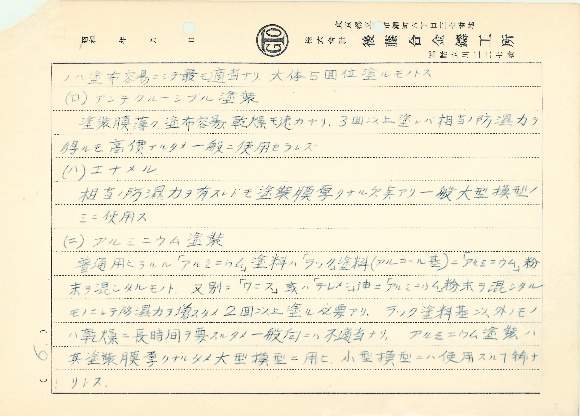 昭和 年 月 日
株式会社 後藤合金鑄工所
ノハ塗布容易ニシテ最モ適当ナリ 大体5回位塗ルモノトス
(ロ) アンチクルーシブル塗装
塗装膜薄ク、塗布容易、乾燥モ速カナリ、3回以上塗レハ相当ノ防湿力ヲ
得ルモ高價ナルタメ一般ニ使用セラレズ
(ハ) エナメル
相当ノ防湿力ヲ有スレドモ塗装膜厚クナル欠点アリ一般大型模型ノ
ミニ使用ス
(ニ) アルミニウム塗装
普通用ヒラルル「アルミニウム」塗料ハ「ラック」塗料(アルコール基)ニ「アルミニウム」粉
末ヲ混ジタルモノト、又別ニ「ワニス」或ハ「テレメン」油ニ「アルミニウム」粉末ヲ混ジタル
モノニシテ防湿力ヲ増スタメ2回以上塗ル必要アリ、ラック塗料基以外ノモノ
ハ乾燥ニ長時間ヲ要スルタメ一般向ニハ不適当ナリ、アルミニウム塗装ハ
其塗装膜厚クナルタメ大型模型ニ用ヒ、小型模型ニハ使用スルコト稀ナ
リトス.
(6.)